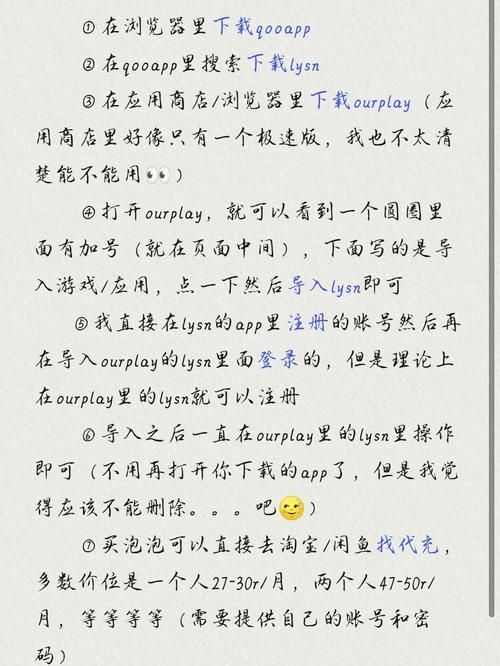 ①在浏览器里下载qooapp
②在qooapp里搜索下载lysn
③在应用商店/浏览器里下载ourplay（应
用商店里好像只有一个极速版，我也不太清
楚能不能用👀）
④打开ourplay，就可以看到一个圆圈里
面有加号（就在页面中间），下面写的是导
入游戏/应用，点一下然后导入lysn即可
⑤我直接在lysn的app里注册的账号然后再
在导入ourplay的lysn里面登录的，但是理论上
在ourplay里的lysn就可以注册
⑥导入之后一直在ourplay里的lysn里操作
即可（不用再打开你下载的app了，但是我觉
得应该不能删除。。。吧🌝）
⑦买泡泡可以直接去淘宝/闲鱼找代充，
多数价位是一个人27-30r/月，两个人47-50r/
月，等等等等（需要提供自己的账号和密
码）